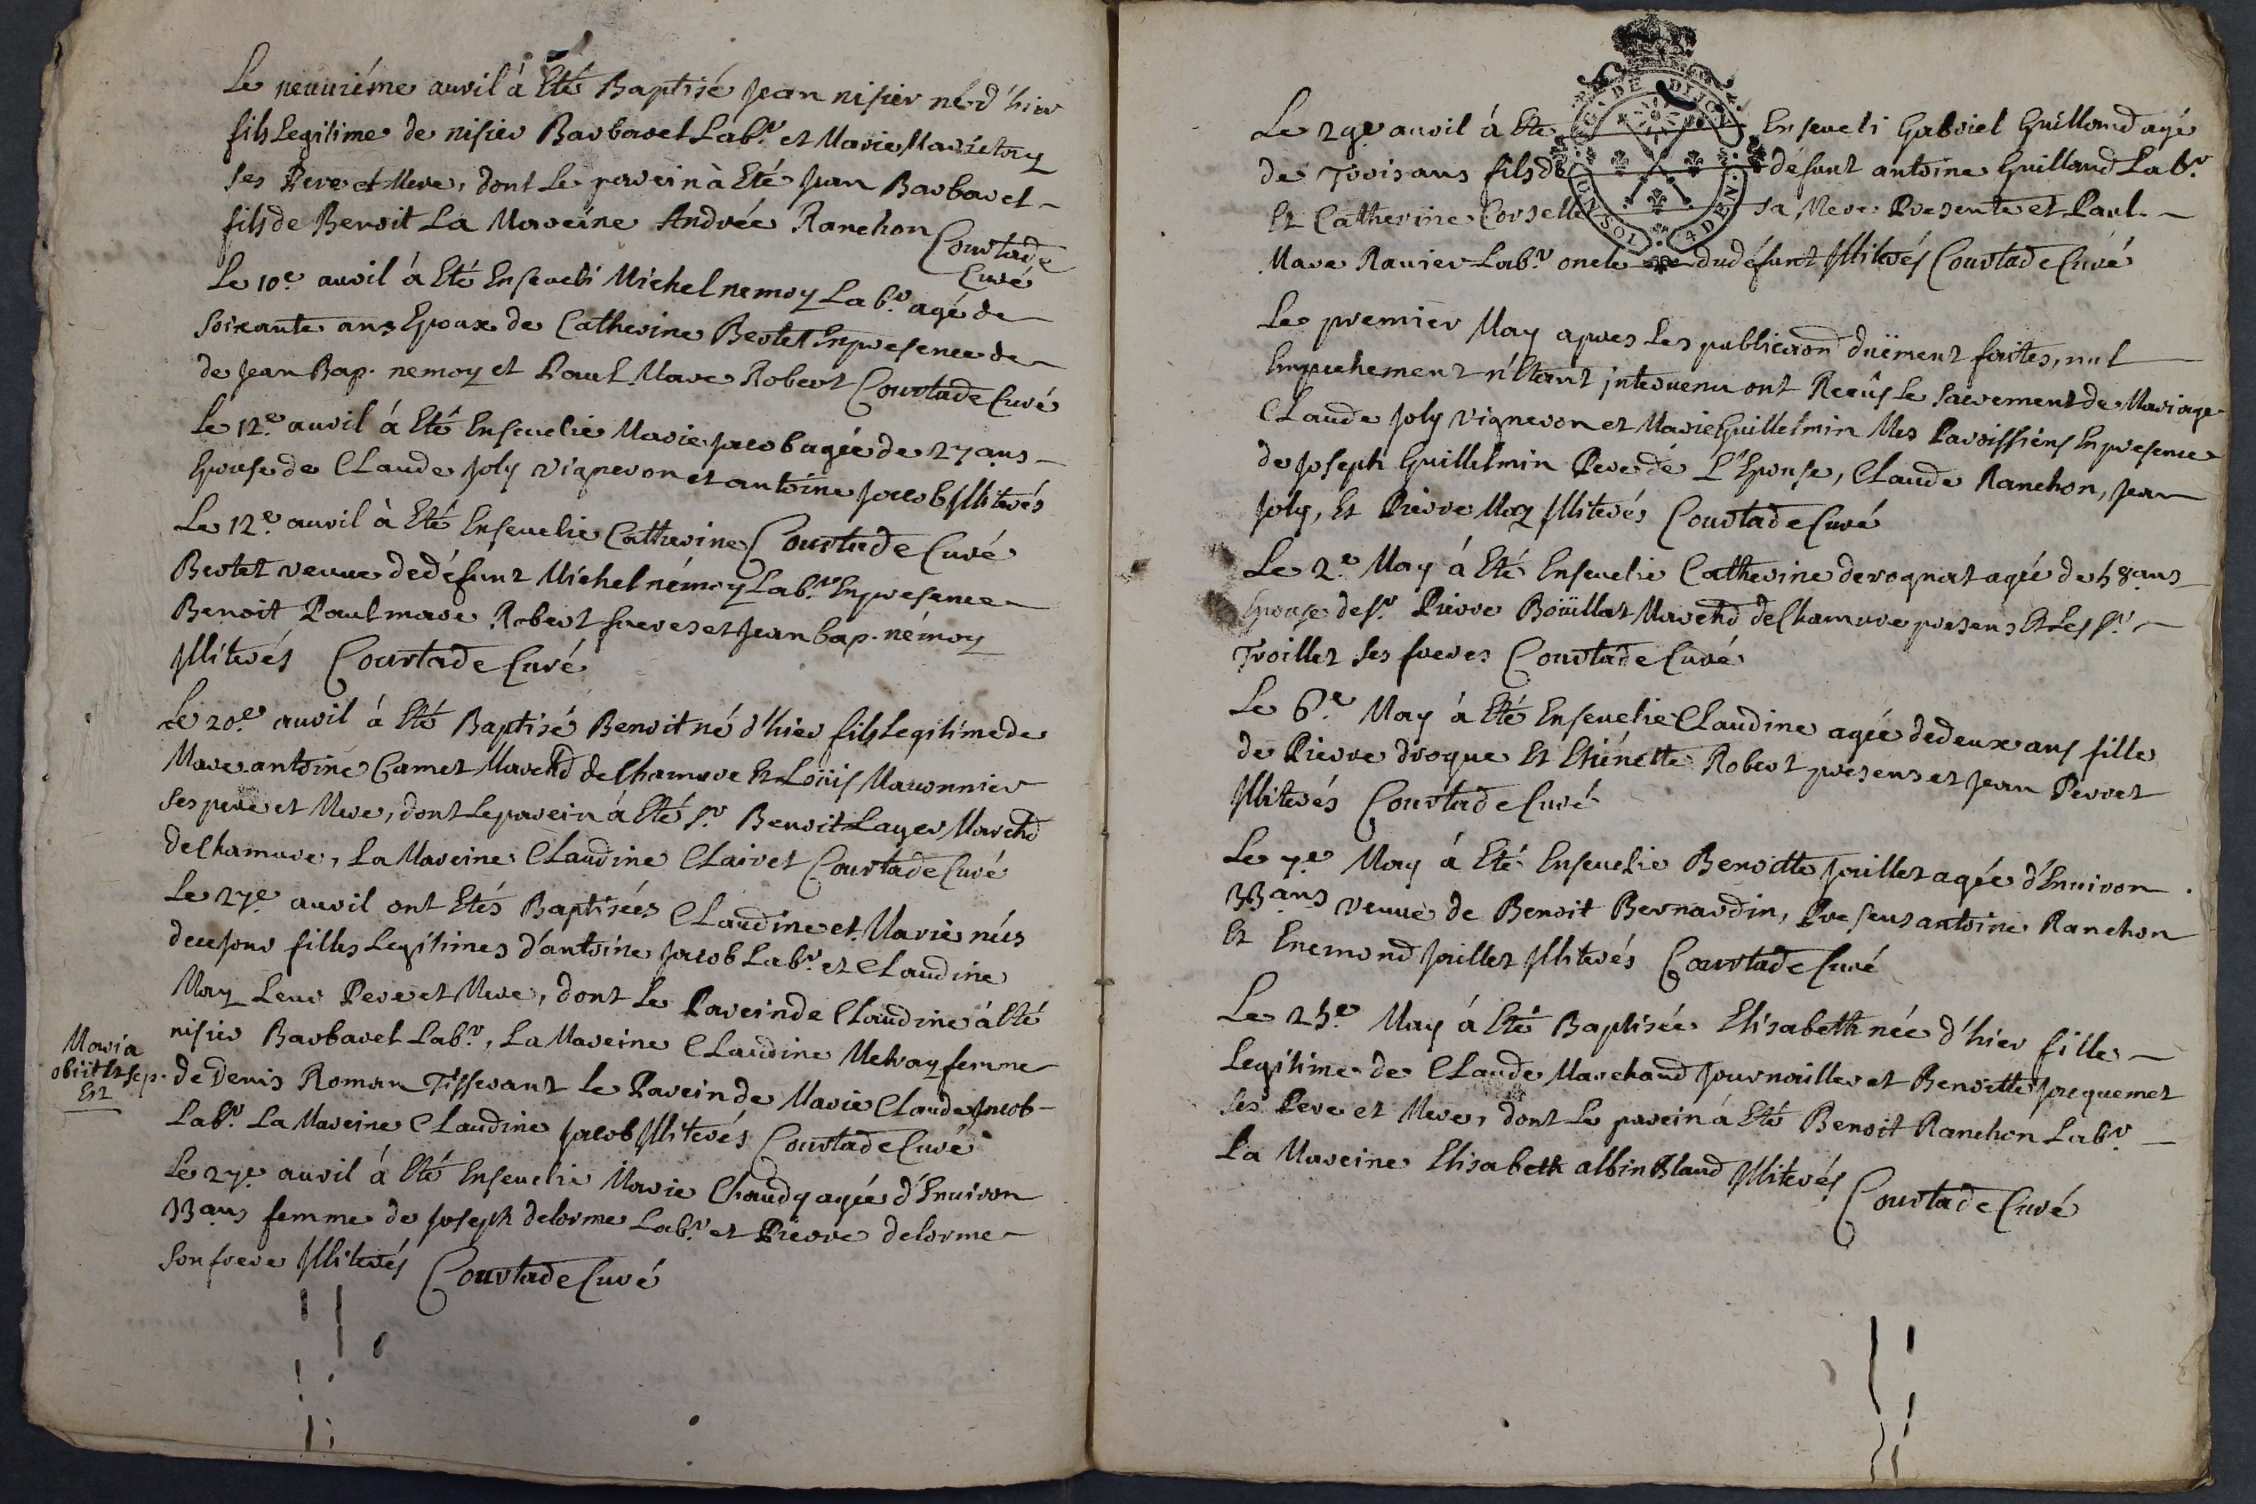 Le neuviéme auril á Eté Baptisé Jean nisier né d'hier
fils Legitime de nisier Barbaret Lab.r et Marie Marietoy
ses Pere et Mere, dont Le parein à Eté Jean Barbaret
fils de Benoit La Mareine Andrée Ranchon Courtade
Curé
Le 10.e auril á Eté Enseueli Michel nemoy Lab.r agé de
soixante ans Epoux de Catherine Bertet En presence de
de Jean Bap. nemoy et Paul Marc Robert Courtade Curé
Le 12.e auril á Eté Enseuelie Marie Jacob agée de 27 ans
Epouse de Claude Joly vigneron et antoine Jacob Illiterés
Courtade Curé
Le 12.e auril à Eté Enseuelie Catherine
Bertet veuue de défunt Michel némoy Lab.r En presence
Benoit Paul marc Robert freres et Jean bap. némoy
Illiterés Courtade Curé
Le 20.e auril á Eté Baptisé Benoit né d'hier fils Legitime de
Marc antoine Camet March̃d de Chamure Et Loüis Maronnier
ses pere et Mere, dont Le parein á Eté S.r Benoit Layer March̃d
de Chamure, La Mareine Claudine Clairet Courtade Curé
Le 27.e auril ont Etés Baptisées Claudine et Marie nées
de ce jour filles Legitimes d'antoine Jacob Lab.r et Claudine
May Leur Pere et Mere, dont Le Parein de Claudine á Eté
nisier Barbaret Lab.r, La Mareine Claudine Melray femme
de Denis Roman Tisserant Le Parein de Marie Claude Jacob
Lab.r La Mareine Claudine Jacob Illiterés Courtade Curé
Maria
obiit sep.
Est
Le 27.e auril á Eté Enseuelie Marie Chaudy agée d'Enuiron
33 ans femme de Joseph delorme Lab.r et Pierre delorme
son frere Illiterés Courtade Curé
GN. DE DIJON
UN SOL 4 DEN.
Le 29.e auril á Eté Enseueli Gabriel Guilland agé
de Trois ans fils de défunt antoine Guilland Lab.r
Et Catherine Corselle sa Mere Presente et Paul
Marc Rauier Lab.r oncle du défunt Illiterés Courtade Curé
Le premier May apres Les publicaõn duëment faites, nul
Empechement n'Etant interuenu ont Reçûs Le sacrement de Mariage
Claude Joly vigneron et Marie Guillelmin Mes Paroissiens En presence
de Joseph Guillelmin Pere de L'Epouse, Claude Ranchon, Jean
Joly, Et Pierre May Illiterés Courtade Curé
Le 2.e May á Eté Enseuelie Catherine derognat agée de 58 ans
Epouse de S.r Pierre Boüillet March̃d de Chamure presens Et Les S.r
Troillet ses freres Courtade Curé
Le 6.e May á Eté Enseuelie Claudine agée de deux ans fille
de Pierre droque Et Etiénette Robert presens et Jean Perret
Illiterés Courtade Curé
Le 7.e May á Eté Enseuelie Benoitte Juillet agée d'Enuiron
33 ans veuue de Benoit Bernardin, Presens antoine Ranchon
Et Enemond Juillet Illiterés Courtade Curé
Le 25.e May á Eté Baptisée Elisabeth née d'hier fille
Legitime de Claude Marchand Journailler et Benoitte Jacquemet
ses Pere et Mere, dont Le parein á Eté Benoit Ranchon Lab.r
La Mareine Elisabeth albin Bland Illiterés
Courtade Curé